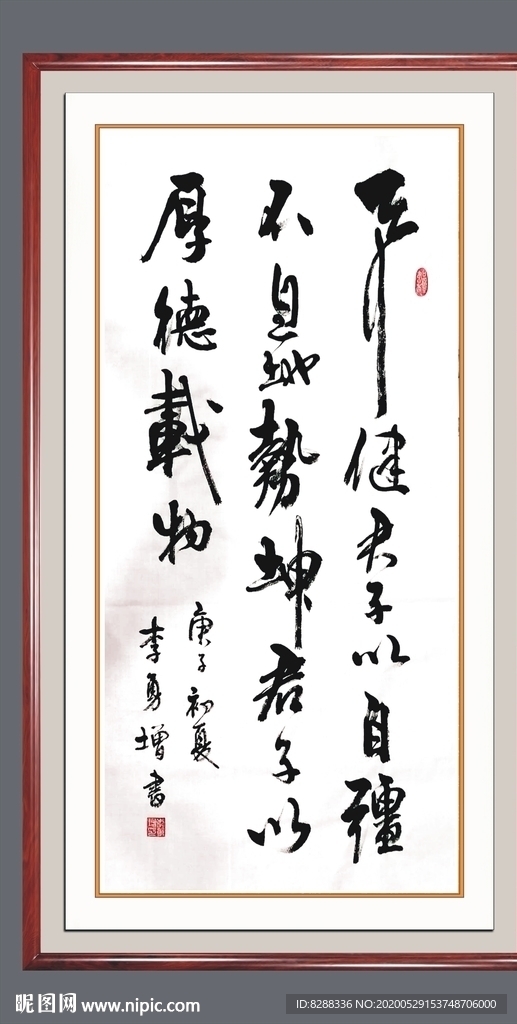 天行健君子以自彊
不息地勢坤君子以
厚德載物
庚子初夏
李勇增書
昵图网 www.nipic.com
ID:8288336 NO:20200529153748706000